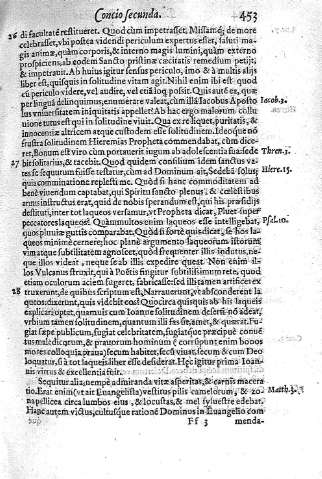 Concio secunda. 453
26 di facultate restitueret. Quod cùm impetrasset, Missamq; de more
celebrasset, vbi postea videndi periculum expertus esset, saluti ma-
gis animæ, quàm corporis, & interno magis lumini, quàm externo
prospiciens, ab eodem Sancto pristinæ cæcitatis remedium petijt,
& impetrauit. Ab huius igitur sensus periculo, imo & à multis alijs
liber est, quisquis in solitudine vitam agit. Nihil enim ibi est quod
cū periculo videre, vel audire, vel etiā loq possit. Quis autē ex, quæ
per linguā delinquimus, enumerare valeat, cùm illā Iacobus Aposto Iacob.3.
lus vniuersitatem iniquitatis appellet? Ab hac ergo malorum collu
uione tutus est qui in solitudine viuit. Qua ex re liquet, puritatis, &
innocentiæ altricem atque custodem esse solitudinem. Ideoque nō
frustra solitudinem Hieremias Propheta commendabat, cùm dice-
ret, Bonum est viro cùm portauerit iugum ab adolescentia sua: sede Thren.3.
27 bit solitarius, & tacebit. Quod quidem consilium idem sanctus va-
tes se sequutum fuisse testatur, cùm ad Dominum ait, Sedebā solus, Hiere.15.
quia comminatione replesti me. Quòd si hanc commoditatem ad
benè viuendum captabat, qui Spiritu sancto plenus, & cælestibus
armis instructus erat, quid de nobis sperandum est, qui his præsidijs
destituti, inter tot laqueos versamur, vt Propheta dicat, Pluet super
peccatores laqueos? Quàm multos enim laqueos esse intelligebat, Psal.10.
quos pluuiæ guttis comparabat. Quòd si fortè quis dicat, se hos la-
queos minimè cernere, hoc planè argumento laqueorum istorum
vimatque subtilitatem agnoscet, quòd frequenter illis indutus, ne-
que illos videre, neque se ab illis expedire queat. Non enim il-
los Vulcanus struxit, qui à Poëtis fingitur subtilissimum rete, quod
etiam oculorum aciem fugeret, fabricasse: sed illi tamen artifices ex
28 truxerunt, de quibus scriptum est, Narrauerunt, vt absconderent la-
queos: dixerunt, quis videbit eos? Quocirca quisquis ab his laqueis
explicari optet, quamuis cum Ioanne solitudinem deserti nō adeat,
vrbium tamen solitudinem, quantum illi fas sit, amet, & quærat. Fu-
giat sæpe publicum, fugiat celebritatem, fugiatque præcipuè conue
tus maledicorum, & prauorum hominum (corrūpunt enim bonos
mores colloquia praua) secum habitet, secū viuat, secum & cum Deo
loquatur, si à tot laqueis liber esse desiderat. Hęc igitur prima Ioan-
nis virtus & excellentia fuit.
Sequitur alia, nempè admiranda vitæ asperitas, & carnis macera
tio. Erat enim (vt ait Euangelista) vestitus pilis camelorum, & zo- Matth.3.
na pellicea circa lumbos eius, & locustas, & mel syluestre edebat.
Hanc autem victus, cultusque rationē Dominus in Euangelio com
Ff 3 menda-